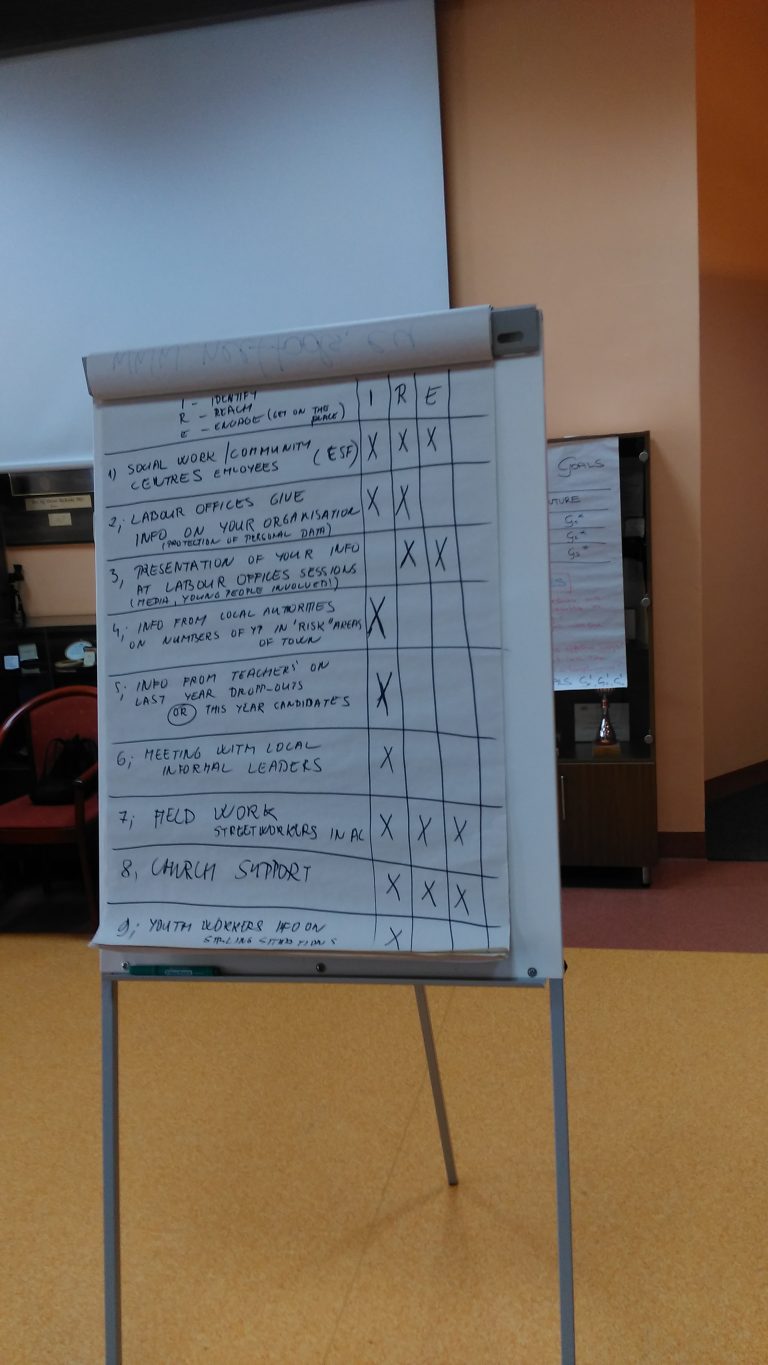 I - IDENTIFY
R - REACH
E - ENGAGE (GET ON THE PLACE)
I R E
1) SOCIAL WORK / COMMUNITY (ESF) X X X
CENTRES EMLOYEES
2; LABOUR OFFICES GIVE X X
INFO ON YOUR ORGANISATION
(PROTECTION OF PERSONAL DATA)
3, PRESENTATION OF YOUR INFO X X
AT LABOUR OFFICES SESSIONS
(MEDIA, YOUNG PEOPLE INVOLVED!)
4; INFO FROM LOCAL AUTORITIES X
ON NUMBERS OF YP IN "RISK" AREAS
OF TOWN
5; INFO FROM TEACHERS' ON X
LAST YEAR DROPP-OUTS
OR THIS YEAR CANDIDATES
6; MEETING WITH LOCAL X
INFORMAL LEADERS
7; FIELD WORK X X X
STREETWORKERS IN AC
8, CHURCH SUPPORT X X X
9; YOUTH WORKERS INFO ON X
GOALS